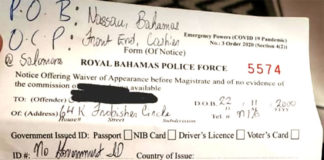 P.O.B: Nassau, Bahamas
O.C.P: Front End, Cashier
@ Solomons
Emergency Powers (COVID 19 Pandemic)
No: 3 Order 2020 (Section 4(2))
Form (Of Notice)
ROYAL BAHAMAS POLICE FORCE
5574
Notice Offering Waiver of Appearance before Magistrate and of no evidence of
the commission available
TO: (Offender) D.O.B. 22 11 2000
OF: (Address) Frobisher Circle Tel #
House# Street Subdivision
Government Issued ID: Passport NIB Card Driver's Licence Voter's Card
ID#: No Government ID Country of Issue: